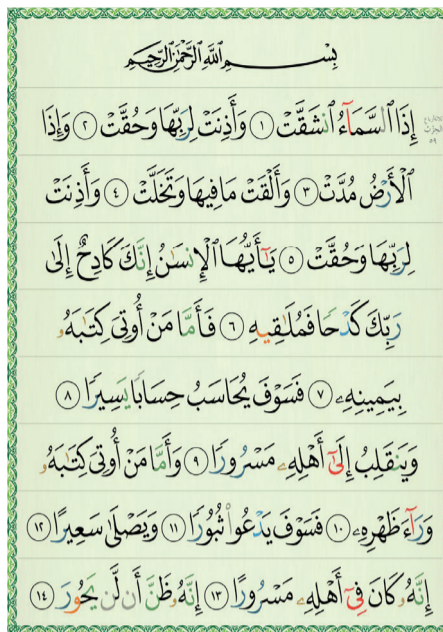 بِسْمِ اللَّهِ الرَّحْمَٰنِ الرَّحِيمِ
إِذَا ٱلسَّمَآءُ ٱنشَقَّتْ ١ وَأَذِنَتْ لِرَبِّهَا وَحُقَّتْ ٢ وَإِذَا
ٱلْأَرْضُ مُدَّتْ ٣ وَأَلْقَتْ مَا فِيهَا وَتَخَلَّتْ ٤ وَأَذِنَتْ
لِرَبِّهَا وَحُقَّتْ ٥ يَٰٓأَيُّهَا ٱلْإِنسَٰنُ إِنَّكَ كَادِحٌ إِلَىٰ
رَبِّكَ كَدْحًا فَمُلَٰقِيهِ ٦ فَأَمَّا مَنْ أُوتِىَ كِتَٰبَهُۥ
بِيَمِينِهِۦ ٧ فَسَوْفَ يُحَاسَبُ حِسَابًا يَسِيرًا ٨
وَيَنقَلِبُ إِلَىٰٓ أَهْلِهِۦ مَسْرُورًا ٩ وَأَمَّا مَنْ أُوتِىَ كِتَٰبَهُۥ
وَرَآءَ ظَهْرِهِۦ ١٠ فَسَوْفَ يَدْعُوا۟ ثُبُورًا ١١ وَيَصْلَىٰ سَعِيرًا ١٢
إِنَّهُۥ كَانَ فِىٓ أَهْلِهِۦ مَسْرُورًا ١٣ إِنَّهُۥ ظَنَّ أَن لَّن يَحُورَ ١٤